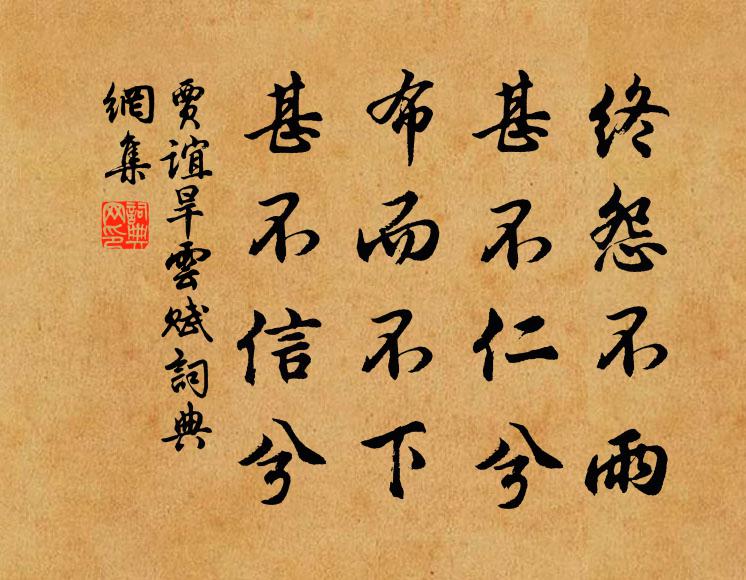 終怨不雨
甚不仁兮
布而不下
甚不信兮
賈誼旱雲賦詞典
網集
詞典
网印